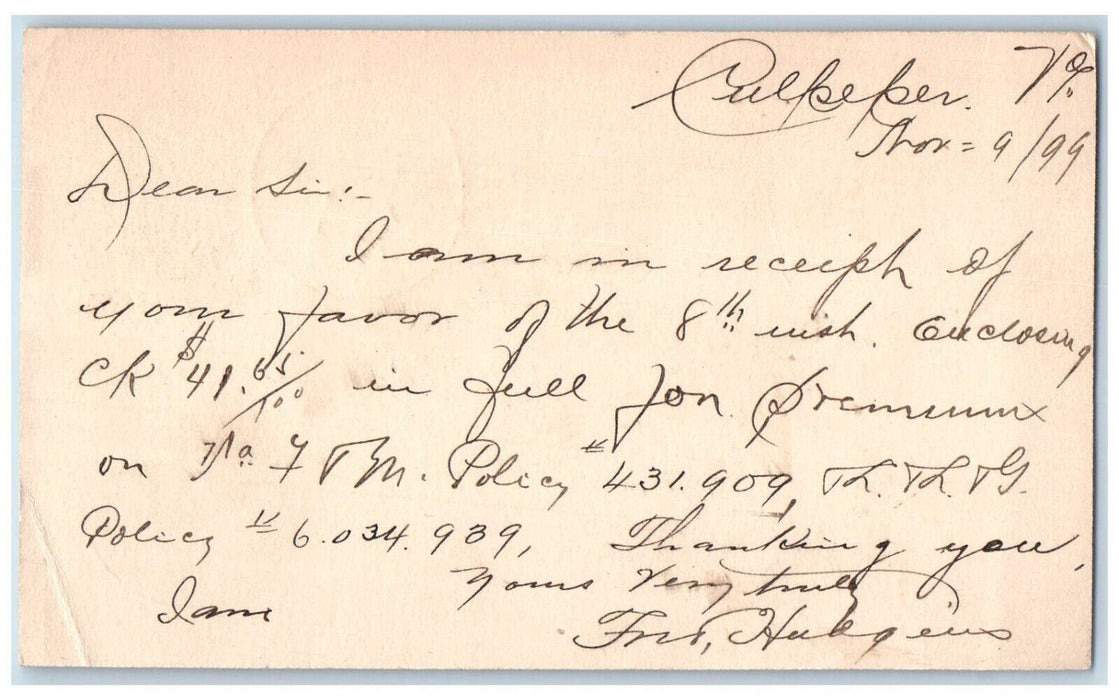 Culpeper. Va.
Nov = 9/99
Dear Sir:-
I am in receipt of
your favor of the 8th inst. Enclosing
Ck $41.65/100 in full for Premiums
on Va F & M. Policy # 431.909, L. L. & G.
Policy # 6.034.939, Thanking you,
Yours Very truly
I am
Hudgins